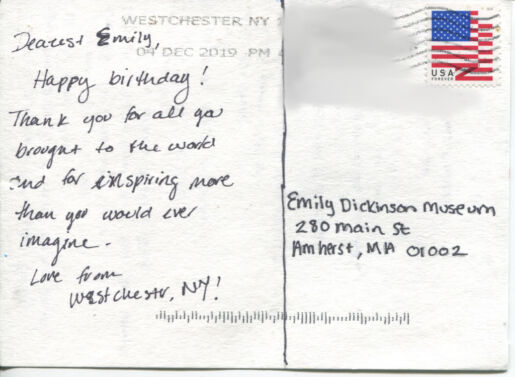 WESTCHESTER NY
04 DEC 2019 PM
Dearest Emily,
Happy birthday!
Thank you for all you
brought to the world
and for inspiring more
than you would ever
imagine.
Love from
Westchestr, NY!
USA
FOREVER
Emily Dickinson Museum
280 Main St
Amherst, MA 01002